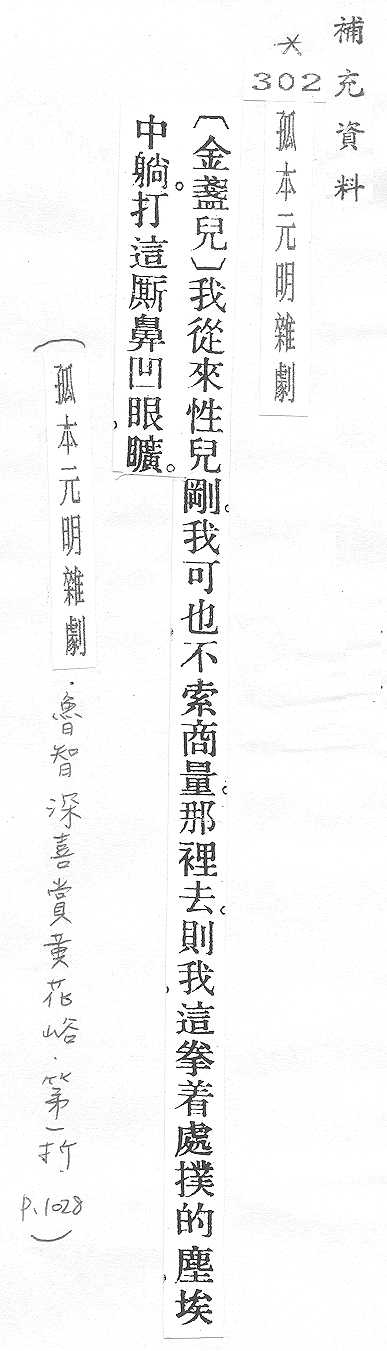 補充資料
※
302
孤本元明雜劇
〔金盞兒〕我從來性兒剛。我可也不索商量。那裡去。則我這拳着處撲的塵埃
中躺。打這厮鼻凹眼曠。
(孤本元明雜劇·魯智深喜賞黃花峪·第一折 P.1028)